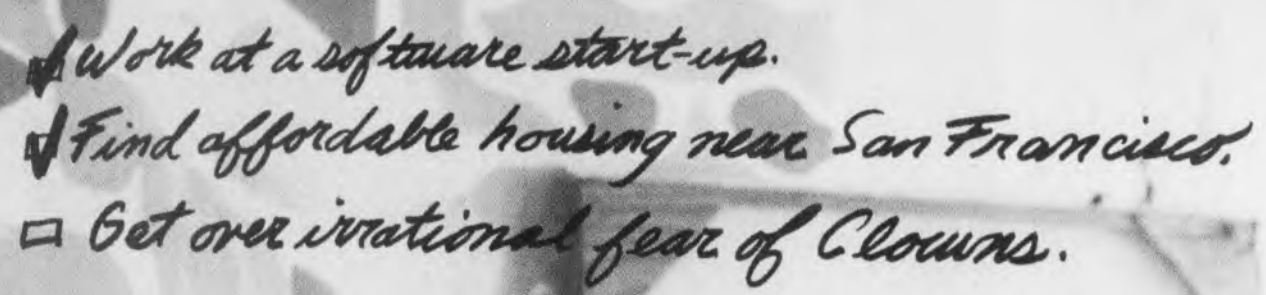 ☑ Work at a software start-up.
☑ Find affordable housing near San Francisco.
☐ Get over irrational fear of Clowns.